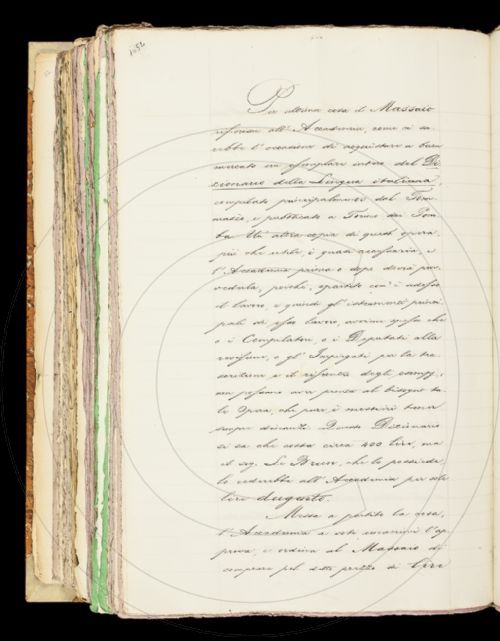 1052
Per ultima cosa il Massaio
riferisce all'Accademia, come ci sa-
rebbe l'occasione di acquistare a buon
mercato un esemplare intero del Di-
zionario della Lingua italiana,
compilato principalmente dal Tom-
maseo, e pubblicato a Torino dai Pom-
ba. Un'altra copia di quest'opera,
più che utile, è quasi necessaria, e
l'Accademia prima o dopo dovrà prov-
vederla, perchè, spartito com'è adesso
il lavoro, e quindi gl'istrumenti princi-
pali di esso lavoro, avviene spesso che
o i Compilatori, o i Deputati alla
revisione, o gl'Impiegati per la tra-
scrizione e il riscontro degli esempj,
non possono aver pronta al bisogno ta-
le Opera, che pure è mestieri tener
sempre dinanzi. Questo Dizionario
si sa che costa circa 400 lire, ma
il sig. Le Brun, che lo possiede,
lo cederebbe all'Accademia per sole
lire dugento.
Messa a partito la cosa,
l'Accademia a voti unanimi l'ap-
prova, e ordina al Massaio di
comprare pel detto prezzo di lire